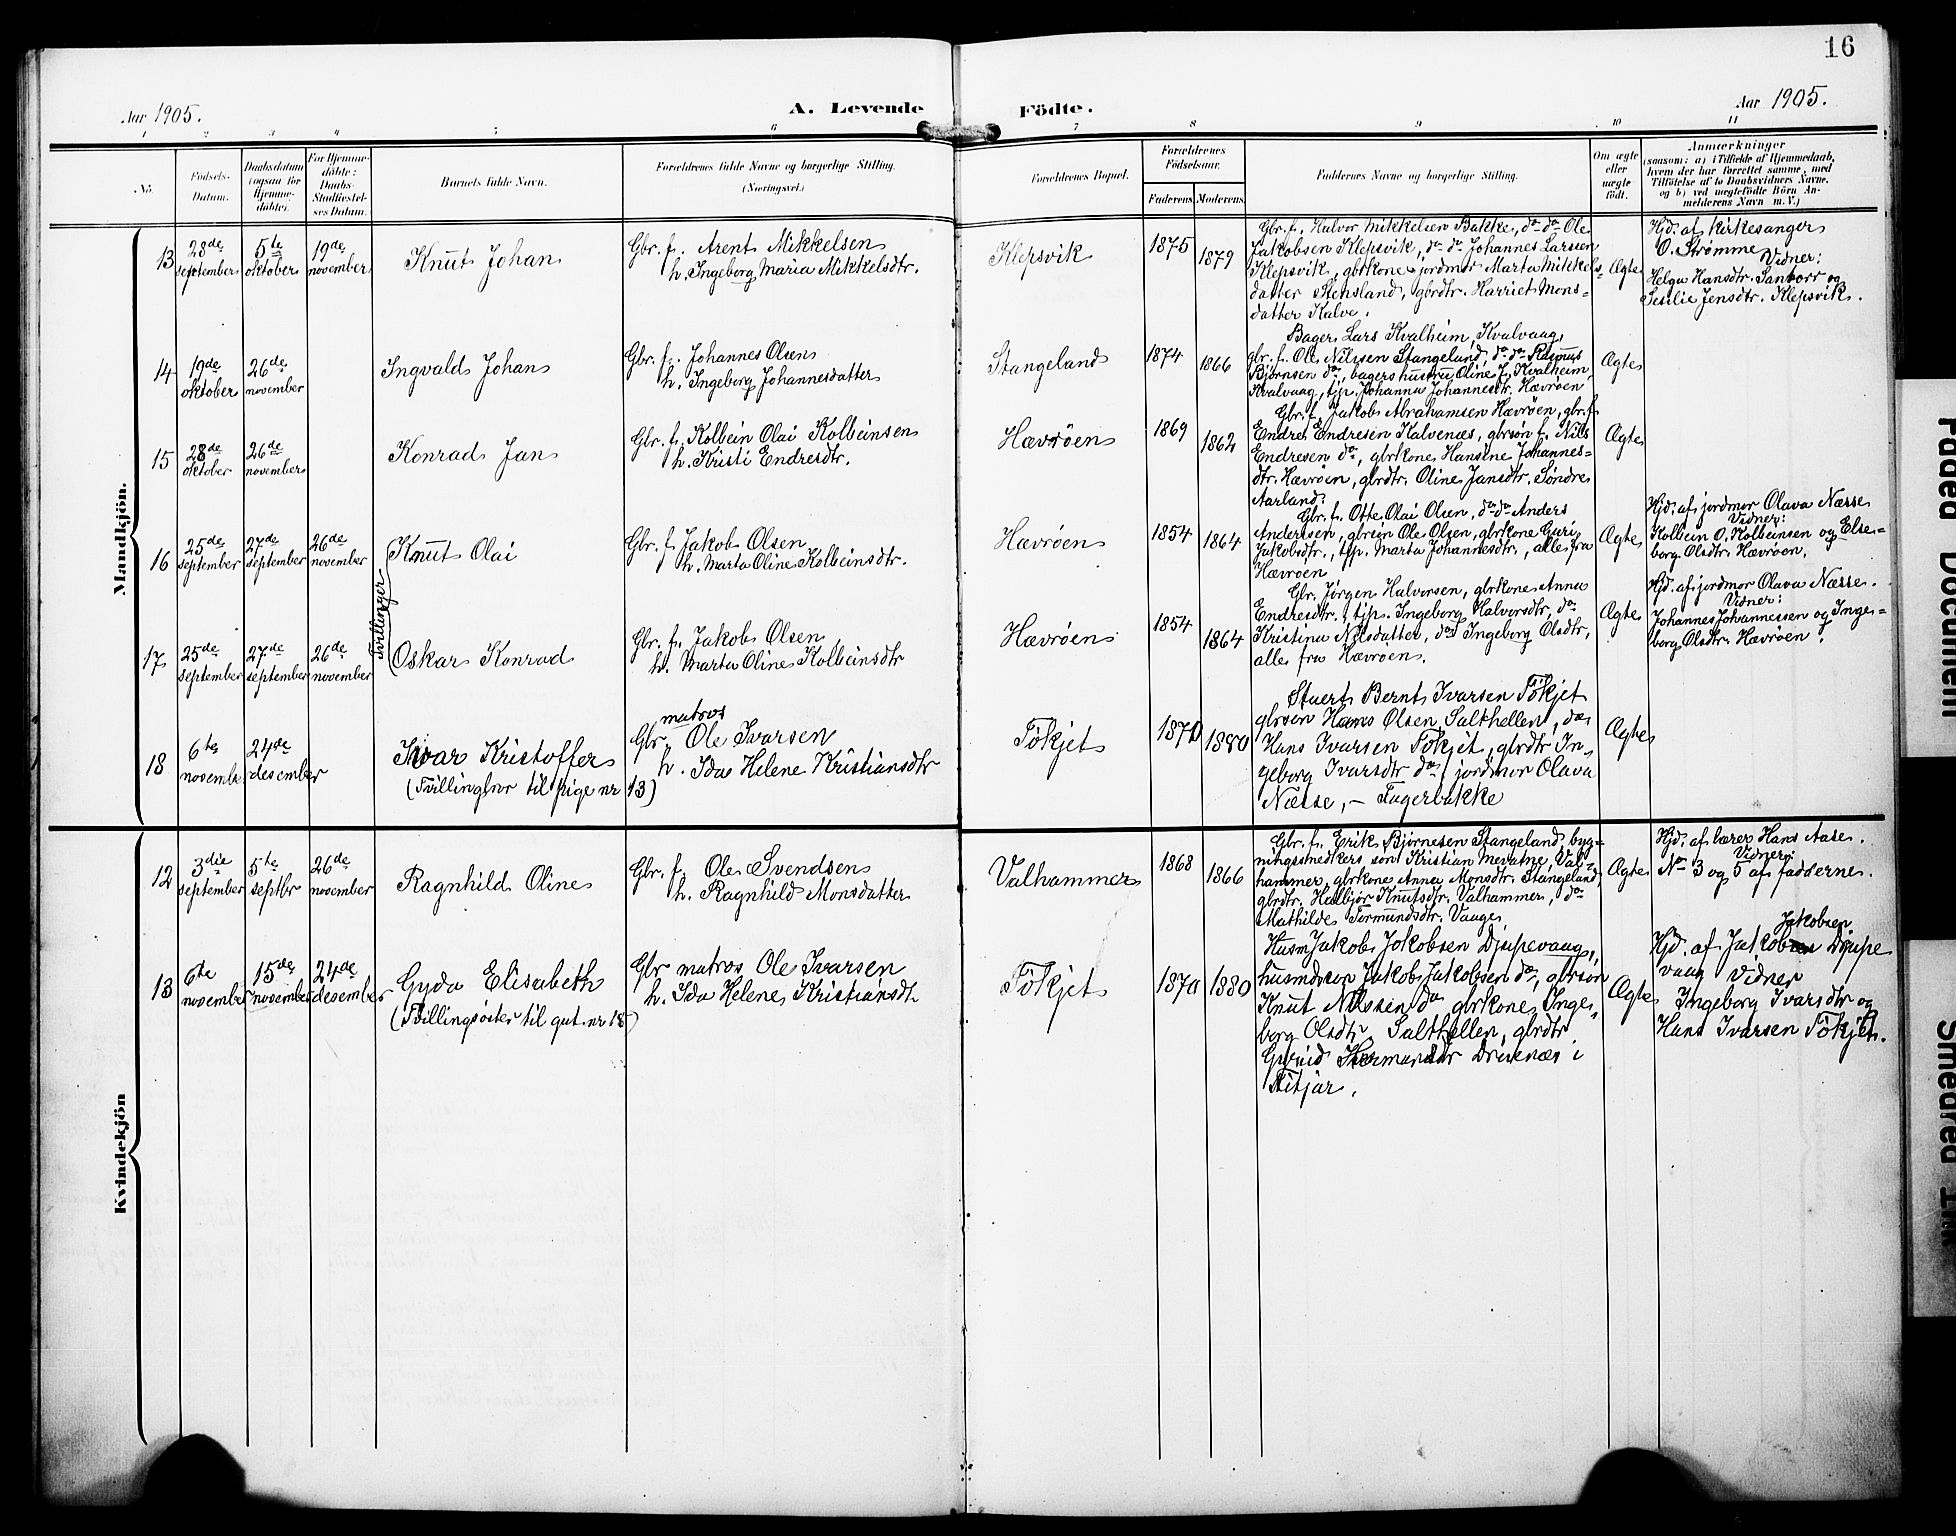 16
Aar 1905.
A. Levende Födte.
Aar 1905.
1 2 3 4 5 6 7 8 9 10 11
No.
Födsels-
Datum.
Daabsdatum
(ogsaa for
Hjemme-
döbte).
For Hjemme-
döbte:
Daabs-
Stadfæstel-
ses Datum.
Barnets fulde Navn.
Forældrenes fulde Navne og borgerlige Stilling.
(Næringsvei.)
Forældrenes Bopæl.
Forældrenes
Födselsaar.
Faderens Moderens
Faddernes Navne og borgerlige Stilling.
Om ægte
eller
uægte
födt.
Anmærkninger
(saasom: a) i Tilfælde af Hjemmedaab,
hvem der har forrettet samme, med
Tilföielse af to Daabsvidners Navne,
og b) ved uegtefödte Börn An-
melderens Navn m. V.)
Mandkjön.
13
28de
september
5te
oktober
19de
november
Knut Johan
Gbr. f. Arent Mikkelsen
h. Ingeborg Maria Mikkelsdtr.
Klepsvik
1875
1879
Gbr. f. Halvor Mikkelsen Bakke, do do Ole
Jakobsen Klepsvik, do do Johannes Larsen
Klepsvik, gbrkone jordmor Marta Mikkels-
datter Stensland, gbrdtr. Harriet Mons-
datter Kalve.
Ægte
Hjd. af kirkesanger
O. Strømme
Vidner:
Helga Hansdtr. Santorr og
Sesilie Jensdtr. Klepsvik.
14
19de
oktober
26de
november
Ingvald Johan
Gbr. f. Johannes Olsen
h. Ingeborg Johannesdatter
Stangeland
1874
1866
Bager Lars Kvalheim, Kvalvaag,
gbr. f. Ole Nilssen Stangeland, do do Rasmus
Bjørnsen do, bagers hustru Oline J. Kvalheim,
Kvalvaag, tjp. Johanna Johannesdtr. Hævrøen
Ægte
15
28de
oktober
26de
november
Konrad Jan
Gbr. f. Kolbein Olai Kolbeinsen
h. Kristi Endresdtr.
Hævrøen
1869
1862
Gbr. f. Jakob Abrahamsen Hævrøen, gbr. f.
Endre Endresen Kalvenæs, gbrsøn f. Nils
Endresen do, gbrkone Hansine Johannes-
dtr. Hævrøen, gbrdtr. Oline Jansdtr. Søndre
Aarland.
Ægte
16
25de
september
27de
september
26de
november
Tvillinger
Knut Olai
Gbr. f. Jakob Olsen
h. Marta Oline Kolbeinsdtr.
Hævrøen
1854
1864
Gbr. f. Otte Olai Olsen, do do Anders
Andersen, gbrsøn Ole Olsen, gbrkone Guri
Jakobsdtr., tjp. Marta Johannesdtr., alle fra
Hævrøen
Ægte
Hjd. af jordmor Olava Næsse
Vidner:
Kolbein O. Kolbeinsen og Else-
borg Olsdtr. Hævrøen.
17
25de
september
27de
september
26de
november
Oskar Konrad
Gbr. f. Jakob Olsen
h. Marta Oline Kolbeinsdtr
Hævrøen
1854
1864
Gbr. Jørgen Halvorsen, gbrkone Anna
Endresdtr., tjp. Ingeborg Halvorsdtr, do
Kristina Nilsdatter, do Ingeborg Olsdtr,
alle fra Hævrøen.
Ægte
Hjd. af jordmor Olava Næsse.
Vidner:
Johannes Johannessen og Inge-
borg Olsdtr. Hævrøen.
18
6te
novembr
24de
desember
Ivar Kristoffer
(Tvillingbror til pige nr 13)
matros
Gbr. Ole Ivarsen
h. Ida Helene Kristiansdtr
Tökjet
1870
1880
Stuert Bernt Ivarsen Tökjet
gbrsøn Hans Olsen Salthellen, do
Hans Ivarsen Tökjet, gbrdtr In-
geborg Ivarsdtr do, jordmor Olava
Næsse, — Fagerbakke
Ægte
Kvindekjön
12
3die
september
5te
septbr
26de
november
Ragnhild Oline
Gbr. f. Ole Svendsen
h. Ragnhild Monsdatter
Valhammer
1868
1866
Gbr. f. Erik Bjørnesen Stangeland, byg-
ningssnedkers søn Kristian Mevatne, Val-
hammer, gbrkone Anna Monsdtr. Stangeland,
gbrdtr. Halbjør Knutsdtr. Valhammer, do
Mathilde Tormundsdtr. Vaage
Ægte
Hjd. af lærer Hans Aase.
Vidner:
No 3 og 5 af fadderne.
13
6te
november
15de
november
24de
desember
Gyda Elisabeth
(Tvillingsöster til gut nr 18)
Gbr matros Ole Ivarsen
h. Ida Helene Kristiansdt
Tökjet
1870
1880
Husm Jakob Jakobsen Djupevaag,
husmdreng Jakob Jakobsen do, gbrsøn
Knut Nilssen do gbrkone Inge-
borg Olsdtr Salthellen, gbrdtr
Hermundsdtr i
Fitjar.
Ægte
Jakobsen
Hjd. af Jakob Djupe
vaag Vidner
Ingeborg Ivarsdtr og
Hans Ivarsen Tökjet.
Faded Document
Smeared Ink